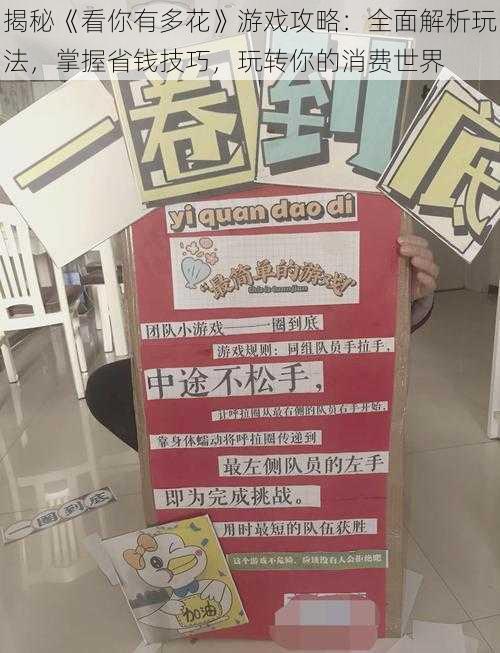 揭秘《看你有多花》游戏攻略：全面解析玩
法，掌握省钱技巧，玩转你的消费世界
一圈到底
yi quan dao di
“最简单的游戏”
团队小游戏——一圈到底
游戏规则：同组队员手拉手，
中途不松手，
让呼拉圈从最右侧的队员右手开始，
靠身体蠕动将呼拉圈传递到
最左侧队员的左手
即为完成挑战。
用时最短的队伍获胜
这个游戏不危险，应该没有人会拒绝吧
一圈到底
加油